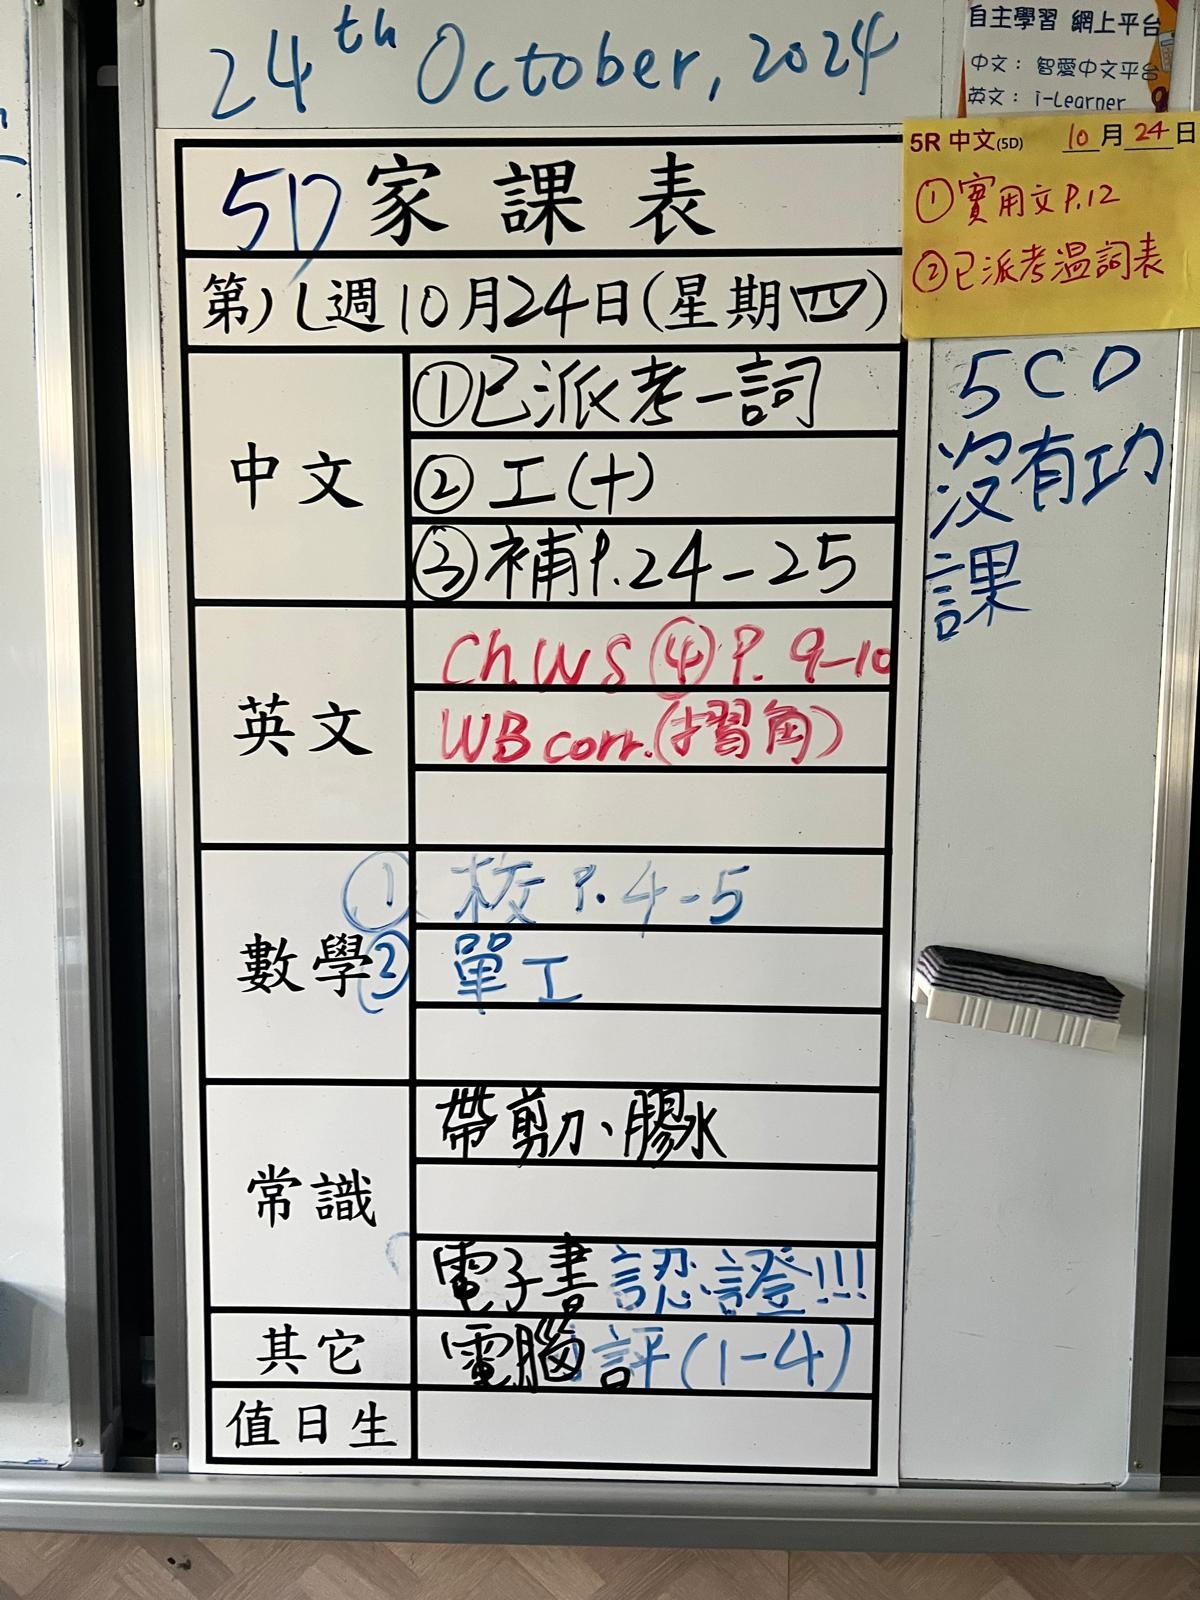 24th October, 2024
自主學習 網上平台
中文： 智愛中文平台
英文： i-Learner
5R 中文(5D) 10月24日
①實用文P.12
②已派考溫詞表
5D 家課表
第八週10月24日(星期四)
中文
①已派考一詞
②工(十)
③補P.24-25
英文
Ch.WS④P.9-10
WB corr.(摺角)
數學
①校P.4-5
②單工
常識
帶剪刀、膠水
電子書認證!!!
其它
電腦評(1-4)
值日生
5CD
沒有功
課